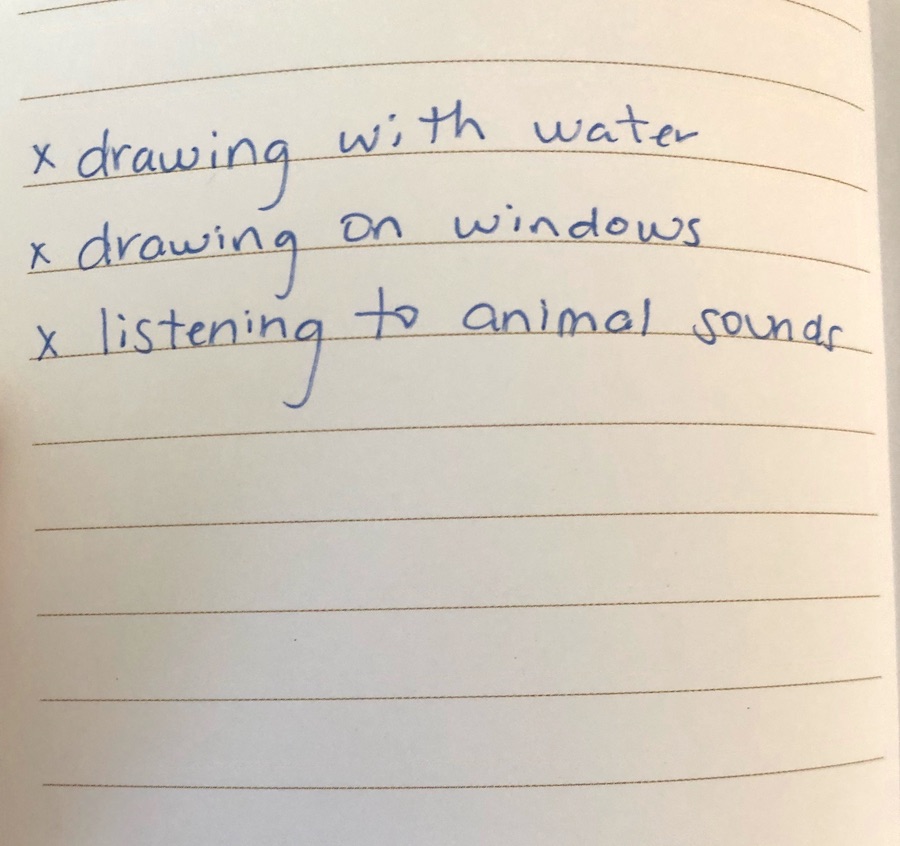 x drawing with water
x drawing on windows
x listening to animal sounds